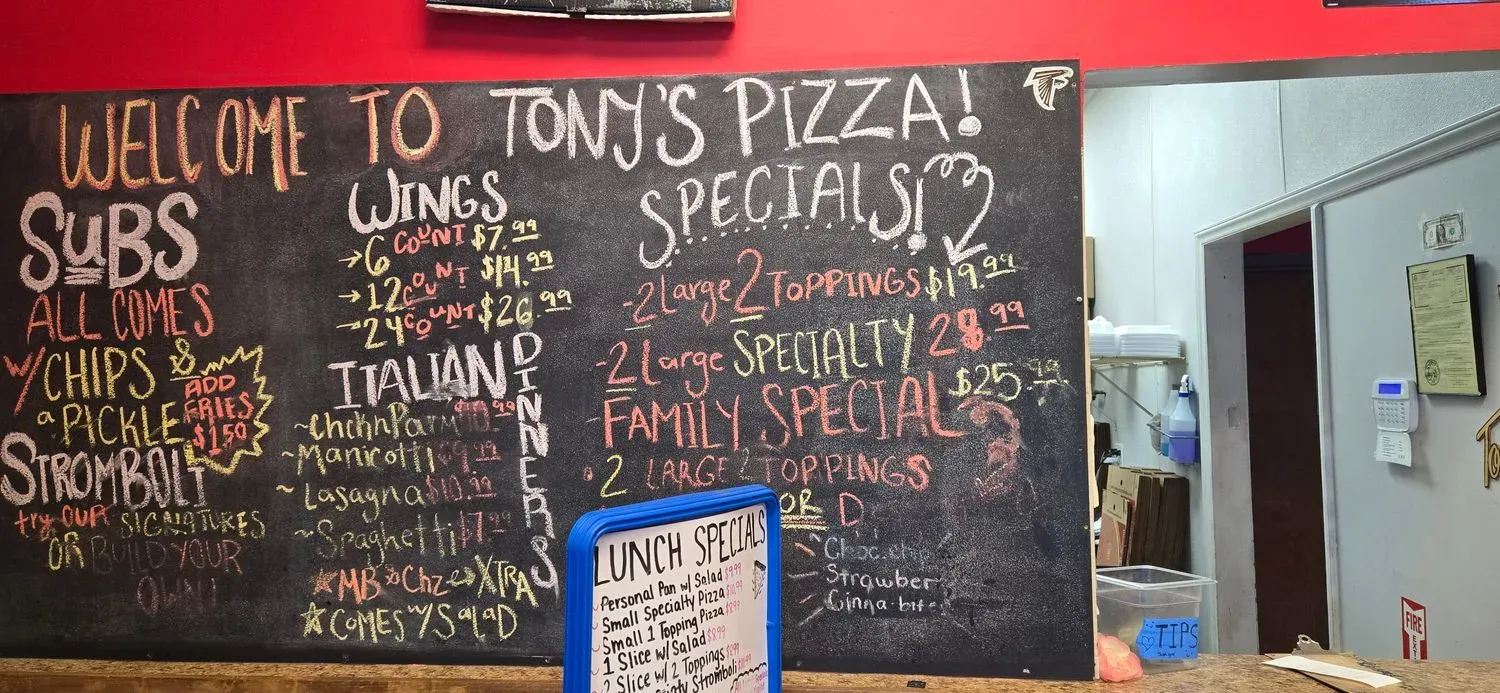 WELCOME TO TONY'S PIZZA!
SUBS
ALL COMES
W/ CHIPS &
a PICKLE
ADD
FRIES
$1.50
STROMBOLI
try OUR SIGNATURES
OR BUILD YOUR
OWN!
WINGS
→6 COUNT $7.99
→12 COUNT $14.99
→24 COUNT $26.99
ITALIAN
DINNERS
~ChcknParm $10.99
~Manicotti $9.99
~Lasagna $10.99
~Spaghetti $7.99
MB Chz XTRA
COMES W/ SALAD
SPECIALS!
-2 Large 2 TOPPINGS $19.99
-2 Large SPECIALTY 28.99
FAMILY SPECIAL $25.99
2 LARGE 2 TOPPINGS
OR D
Choc. chip
Strawber
Cinna-bite
LUNCH SPECIALS
Personal Pan w/ Salad $9.99
Small Specialty Pizza $10.99
Small 1 Topping Pizza $8.99
1 Slice w/ Salad $8.99
2 Slice w/ 2 Toppings
Stromboli
TIPS
FIRE